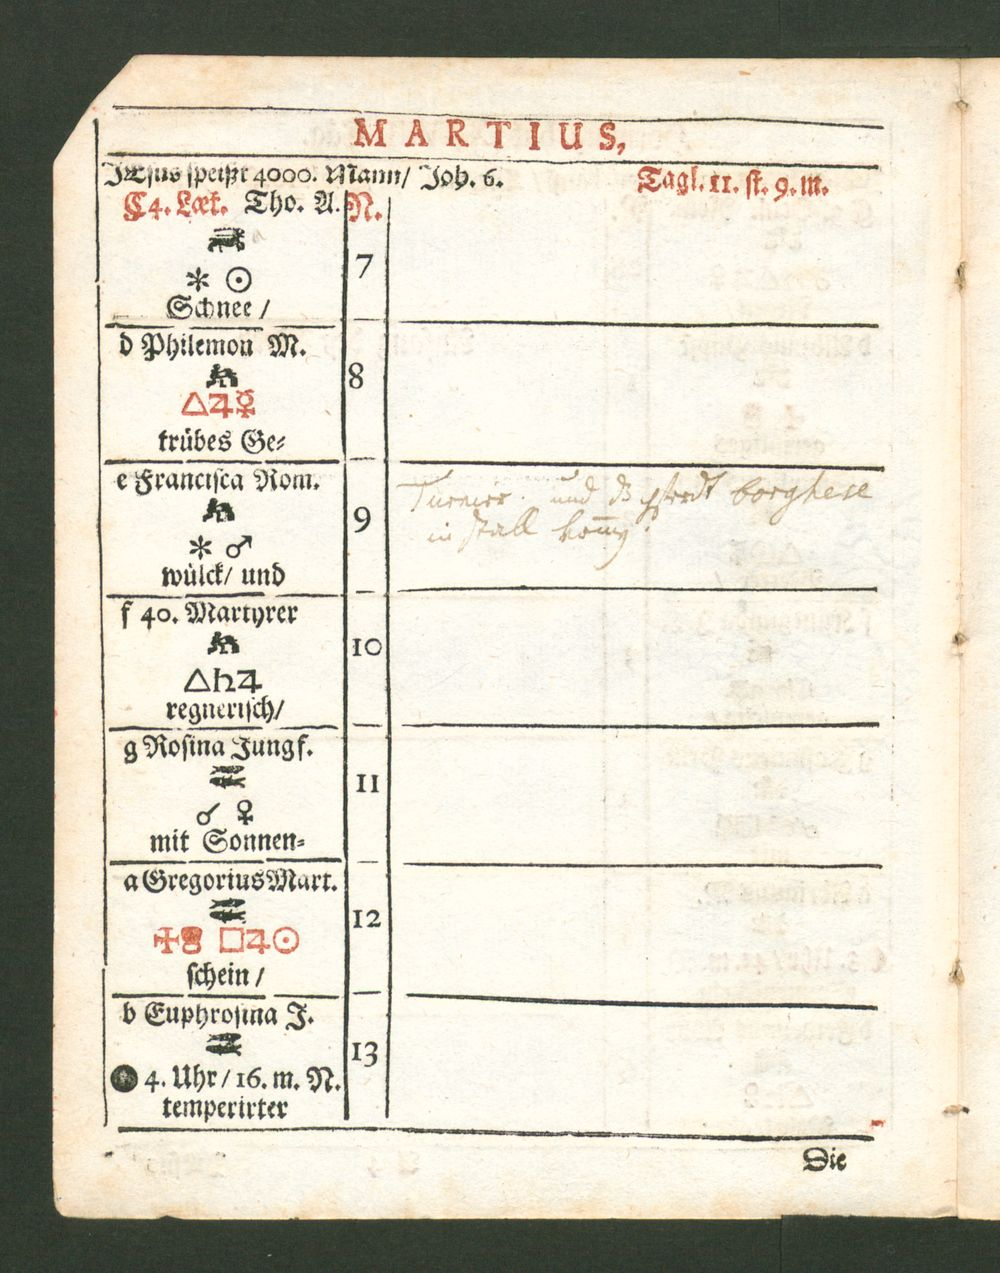 MARTIUS,
JEsus speißt 4000. Mann/ Joh. 6. Tagl. 11. st. 9. m.
C4. Læt. Tho. A. N.
⚹ ☉
7
Schnee /
d Philemon M.
8
△♃☿
trübes Ge-
e Francisca Rom.
Turnier. und dz pferdt borghese
in stall
9
⚹ ♂
wülck/ und
f 40. Martyrer
10
△♄♃
regnerisch/
g Rosina Jungf.
11
☌ ♀
mit Sonnen-
a Gregorius Mart.
12
□♃☉
schein /
b Euphrosina J.
13
● 4. Uhr / 16. m. N.
temperirter
Die